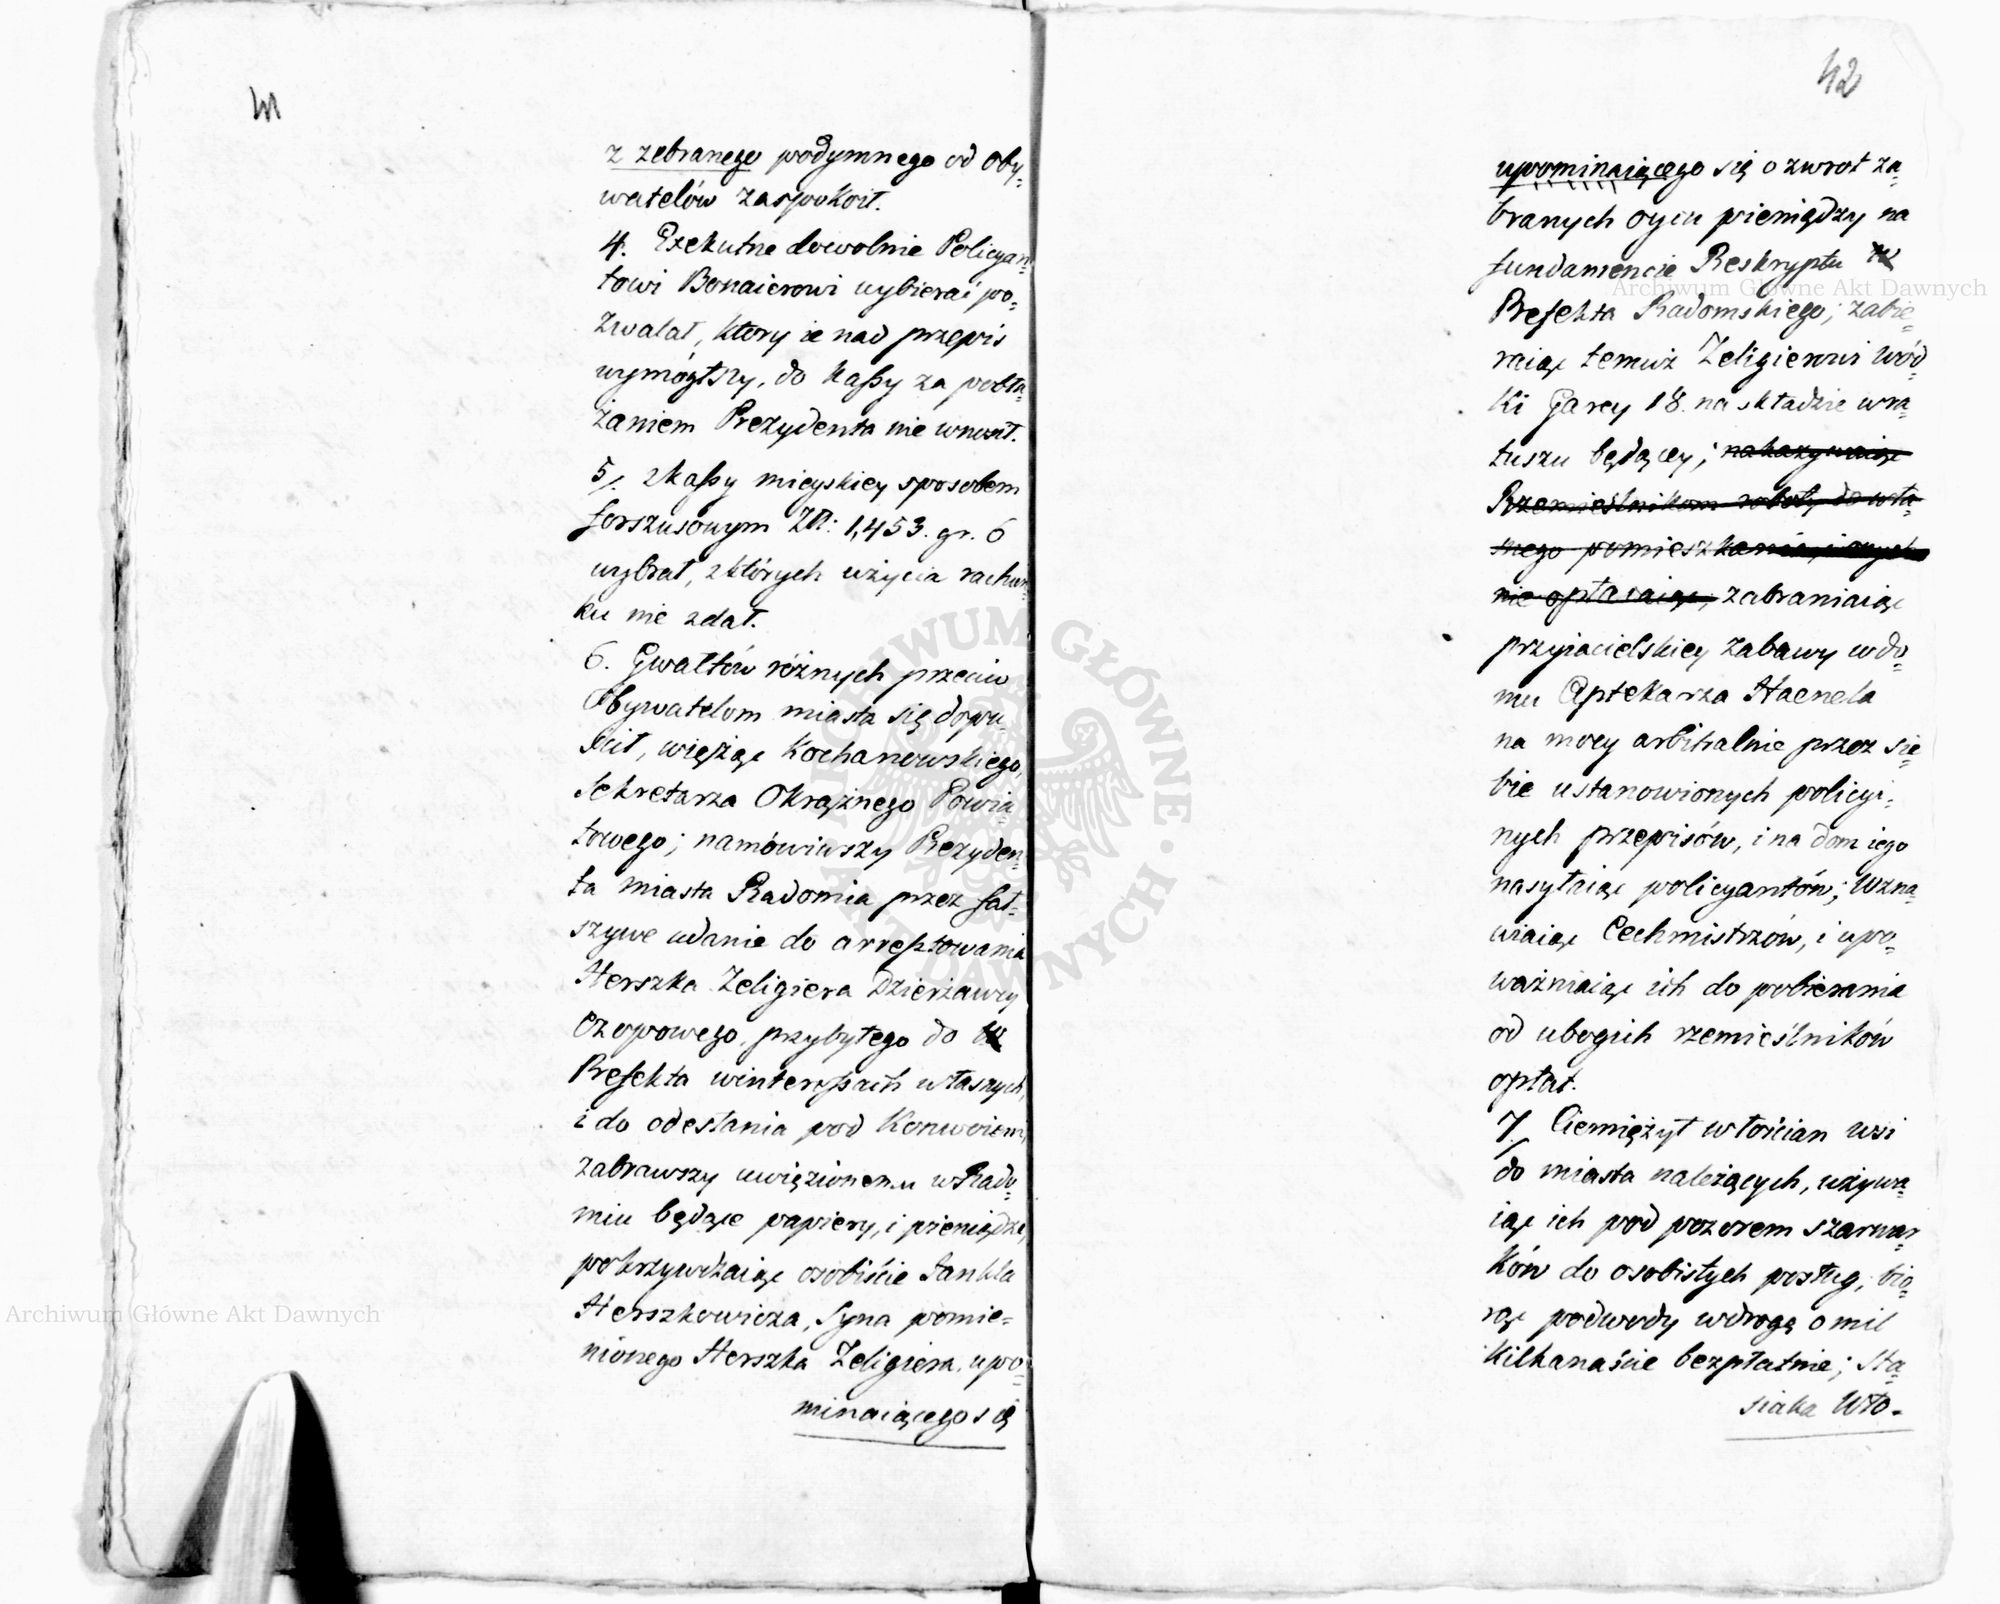 41
z zebranego podymnego od Oby-
watelów zaspokoił.
4. Exekutne dowolnie Policyan-
towi Bonaierowi wybierać po-
zwalał, który ie nad przepis
wymógłszy, do kassy za pobła-
żaniem Prezydenta nie wnosił.
5, z kassy mieyskiey sposobem
forszusowym Złł: 1,453. gr. 6
wybrał, z których użycia rachun-
ku nie zdał.
6. Gwałtów różnych przeciw
Obywatelom miasta się dopu-
ścił, więżąc Kochanowskiego,
Sekretarza Okrążnego Powia-
towego; namówiwszy Prezyden-
ta miasta Radomia przez fał-
szywe udanie do arresztowania
Herszka Zeligiera Dzierżawcy
Czopowego, przybyłego do
Prefekta w interessach własnych,
i do odesłania pod Konwoiem,
zabrawszy uwięzionemu w Rado-
miu będące papiery, i pieniądze,
pokrzywdzaiąc osobiście Jankla
Herszkowicza, Syna pomie-
nionego Herszka Zeligiera, upo-
minaiącego się
42
upominaiącego się o zwrot za-
branych oycu pieniędzy na
fundamencie Reskryptu
Prefekta Radomskiego; zabie-
raiąc temuż Zeligierowi wód-
ki Garcy 18. na składzie w ra-
tuszu będącey; nakazywaiąc
Rzemieślnikom roboty do wła-
snego pomieszkania, i onych
nie opłacaiąc, zabraniaiąc
przyiacielskiey zabawy w do-
mu Aptekarza Haenela
na mocy arbitralnie przez sie-
bie ustanowionych policyi-
nych przepisów, i na dom iego
nasyłaiąc policyantów; Wzna-
wiaiąc Cechmistrzów, i upo-
ważniaiąc ich do pobierania
od ubogich rzemieślników
opłat.
7, Ciemiężył włościan wsi
do miasta należących, używa-
iąc ich pod pozorem szarwar-
ków do osobistych posług, bio-
rąc podwody w drogę o mil
kilkanaście bezpłatnie; Sta-
siaka Wło-
Archiwum Główne Akt Dawnych
Archiwum Główne Akt Dawnych
ARCHIWUM GŁÓWNE AKT DAWNYCH